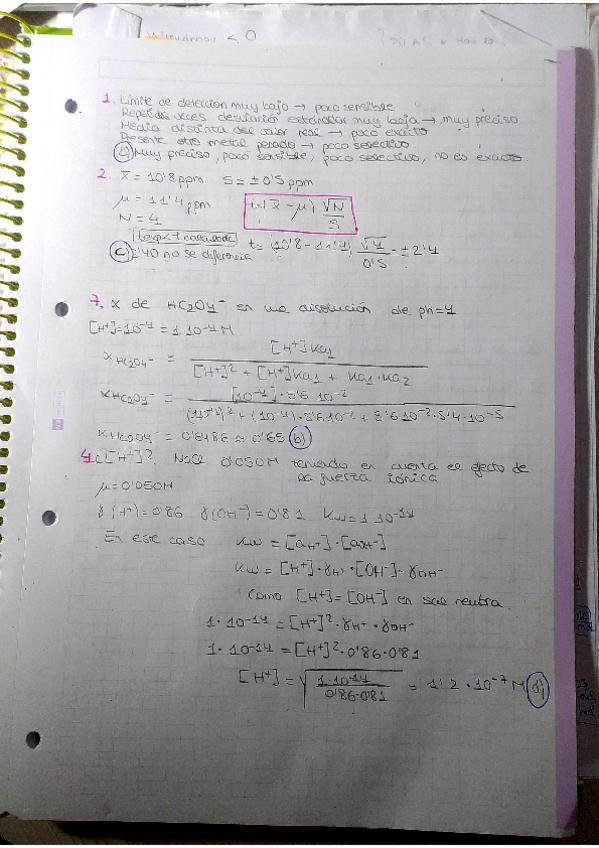 < 0
1. Límite de detección muy bajo → poco sensible
Repetidas veces desviación estándar muy baja → muy preciso
Media distinta del valor real → poco exacto
Presente otro metal pesado → poco selectivo
Muy preciso, poco sensible, poco selectivo, no es exacto.
2. x̄ = 10'8 ppm S = ±0'5 ppm
μ = 11'4 ppm t=(x̄ − μ) √N/S
N = 4
texp < t calculada t = (10'8 − 11'4) √4/0'5 = ±2'4
c) 2'40 no se diferencia
7. x de HC2O4⁻ en una disolución de ph=4
[H⁺]=10⁻⁴ = 1 10⁻⁴ M
x HC2O4⁻ = [H⁺]Ka1 / [H⁺]² + [H⁺]Ka1 + Ka1·Ka2
x HC2O4⁻ = [10⁻⁴]·5'6 10⁻² / (10⁻⁴)² + (10⁻⁴)·5'6 10⁻² + 5'6 10⁻²·5'4·10⁻⁵
x HC2O4⁻ = 0'6486 ≈ 0'65 b)
4. c[H⁺]? NaCl 0'050M teniendo en cuenta el efecto de
la fuerza iónica
μ = 0'050M
γ(H⁺) = 0'86 γ(OH⁻) = 0'81 Kw = 1 10⁻¹⁴
En este caso Kw = [aH⁺]·[aOH⁻]
Kw = [H⁺]·γH⁺·[OH⁻]·γOH⁻
Como [H⁺] = [OH⁻] en sal neutra.
1·10⁻¹⁴ = [H⁺]²·γH⁺·γOH⁻
1·10⁻¹⁴ = [H⁺]²·0'86·0'81
[H⁺] = √(1·10⁻¹⁴ / 0'86·0'81) = 1'2·10⁻⁷ M